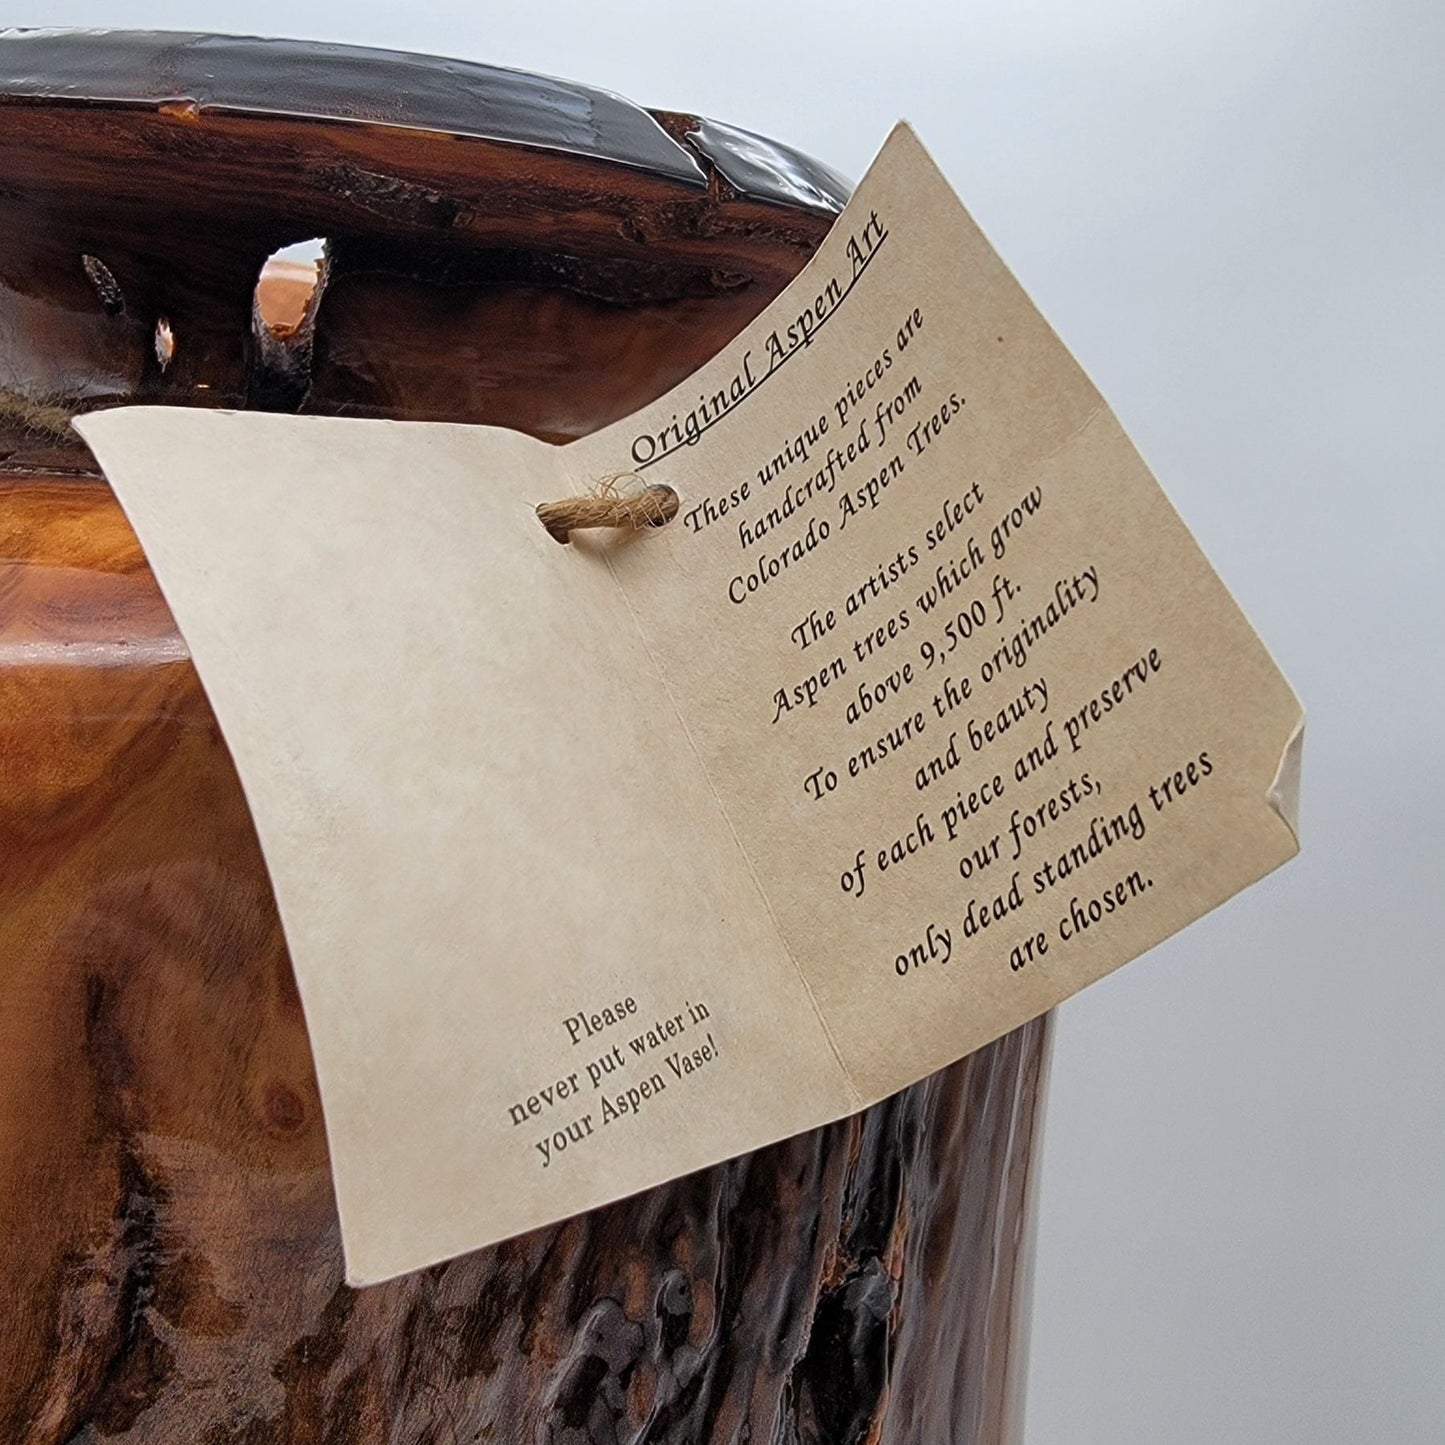 Original Aspen Art
These unique pieces are
handcrafted from
Colorado Aspen Trees.
The artists select
Aspen trees which grow
above 9,500 ft.
To ensure the originality
and beauty
of each piece and preserve
our forests,
only dead standing trees
are chosen.
Please
never put water in
your Aspen Vase!